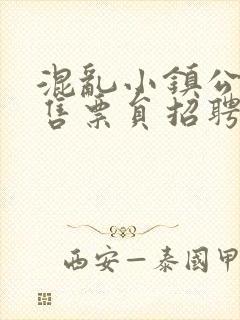 混亂小鎮公
售票員招聘
西安—泰國甲